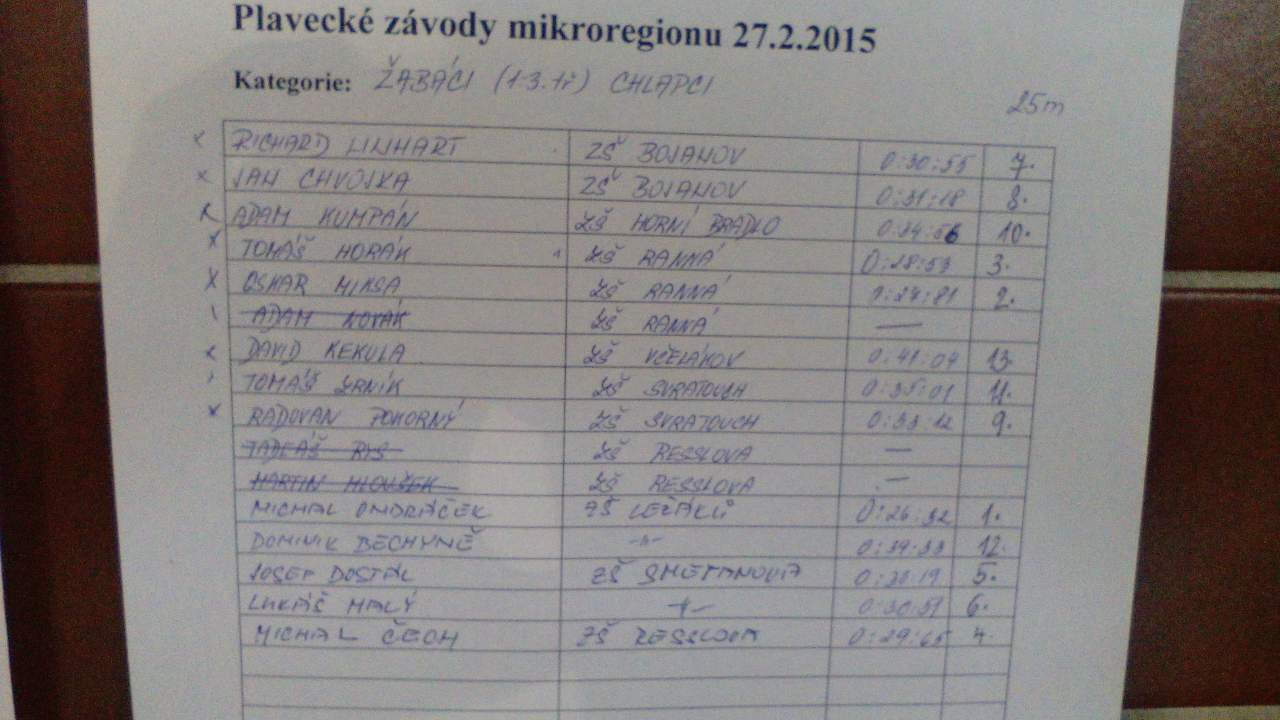 Plavecké závody mikroregionu 27.2.2015
Kategorie: ŽABÁCI (1-3.tř) CHLAPCI
25m
x RICHARD LINHART ZŠ BOJANOV 0:30:55 7.
x JAN CHVOJKA ZŠ BOJANOV 0:31:18 8.
x ADAM KUMPÁN ZŠ HORNÍ BRADLO 0:34:56 10.
x TOMÁŠ HORÁK ZŠ RANNÁ 0:28:53 3.
x OSKAR MIKSA ZŠ RANNÁ 2.
ADAM NOVÁK ZŠ RANNÁ —
x DAVID KEKULA ZŠ VČELÁKOV 0:41:04 13.
TOMÁŠ ZŠ SVRATOUCH 0:35:01 11.
x RADOVAN POKORNÝ ZŠ SVRATOUCH 0:33:12 9.
TADEÁŠ RYS ZŠ RESSLOVA —
MARTIN HLOUŠEK ZŠ RESSLOVA —
MICHAL ONDRÁČEK ZŠ LEŽÁKŮ 0:26:32 1.
DOMINIK BECHYNĚ -"- 0:39:33 12.
JOSEF DOSTÁL ZŠ SMETANOVA 5.
LUKÁŠ MALÝ -"- 0:30:51 6.
MICHAL ČECH ZŠ RESSLOVA 0:29:65 4.